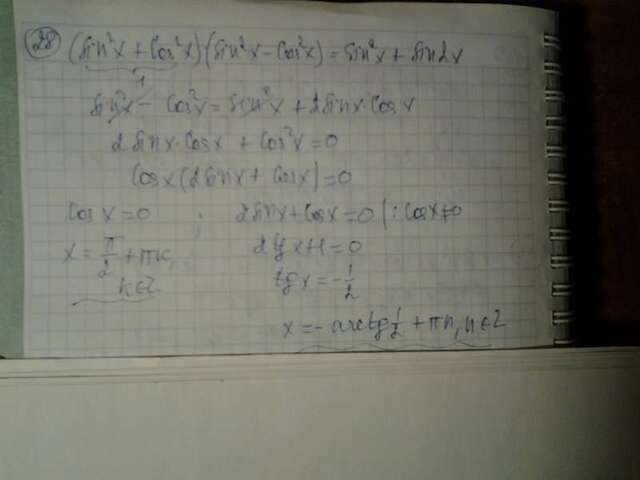 28 (Sin²x + Cos²x)(Sin²x - Cos²x) = Sin²x + Sin2x
1
Sin²x - Cos²x = Sin²x + 2Sinx·Cosx
2Sinx·Cosx + Cos²x = 0
Cosx(2Sinx + Cosx) = 0
Cosx = 0 ; 2Sinx + Cosx = 0 | : Cosx ≠ 0
x = π/2 + πk, 2tgx + 1 = 0
k∈Z tgx = -1/2
x = -arctg 1/2 + πn, n∈Z